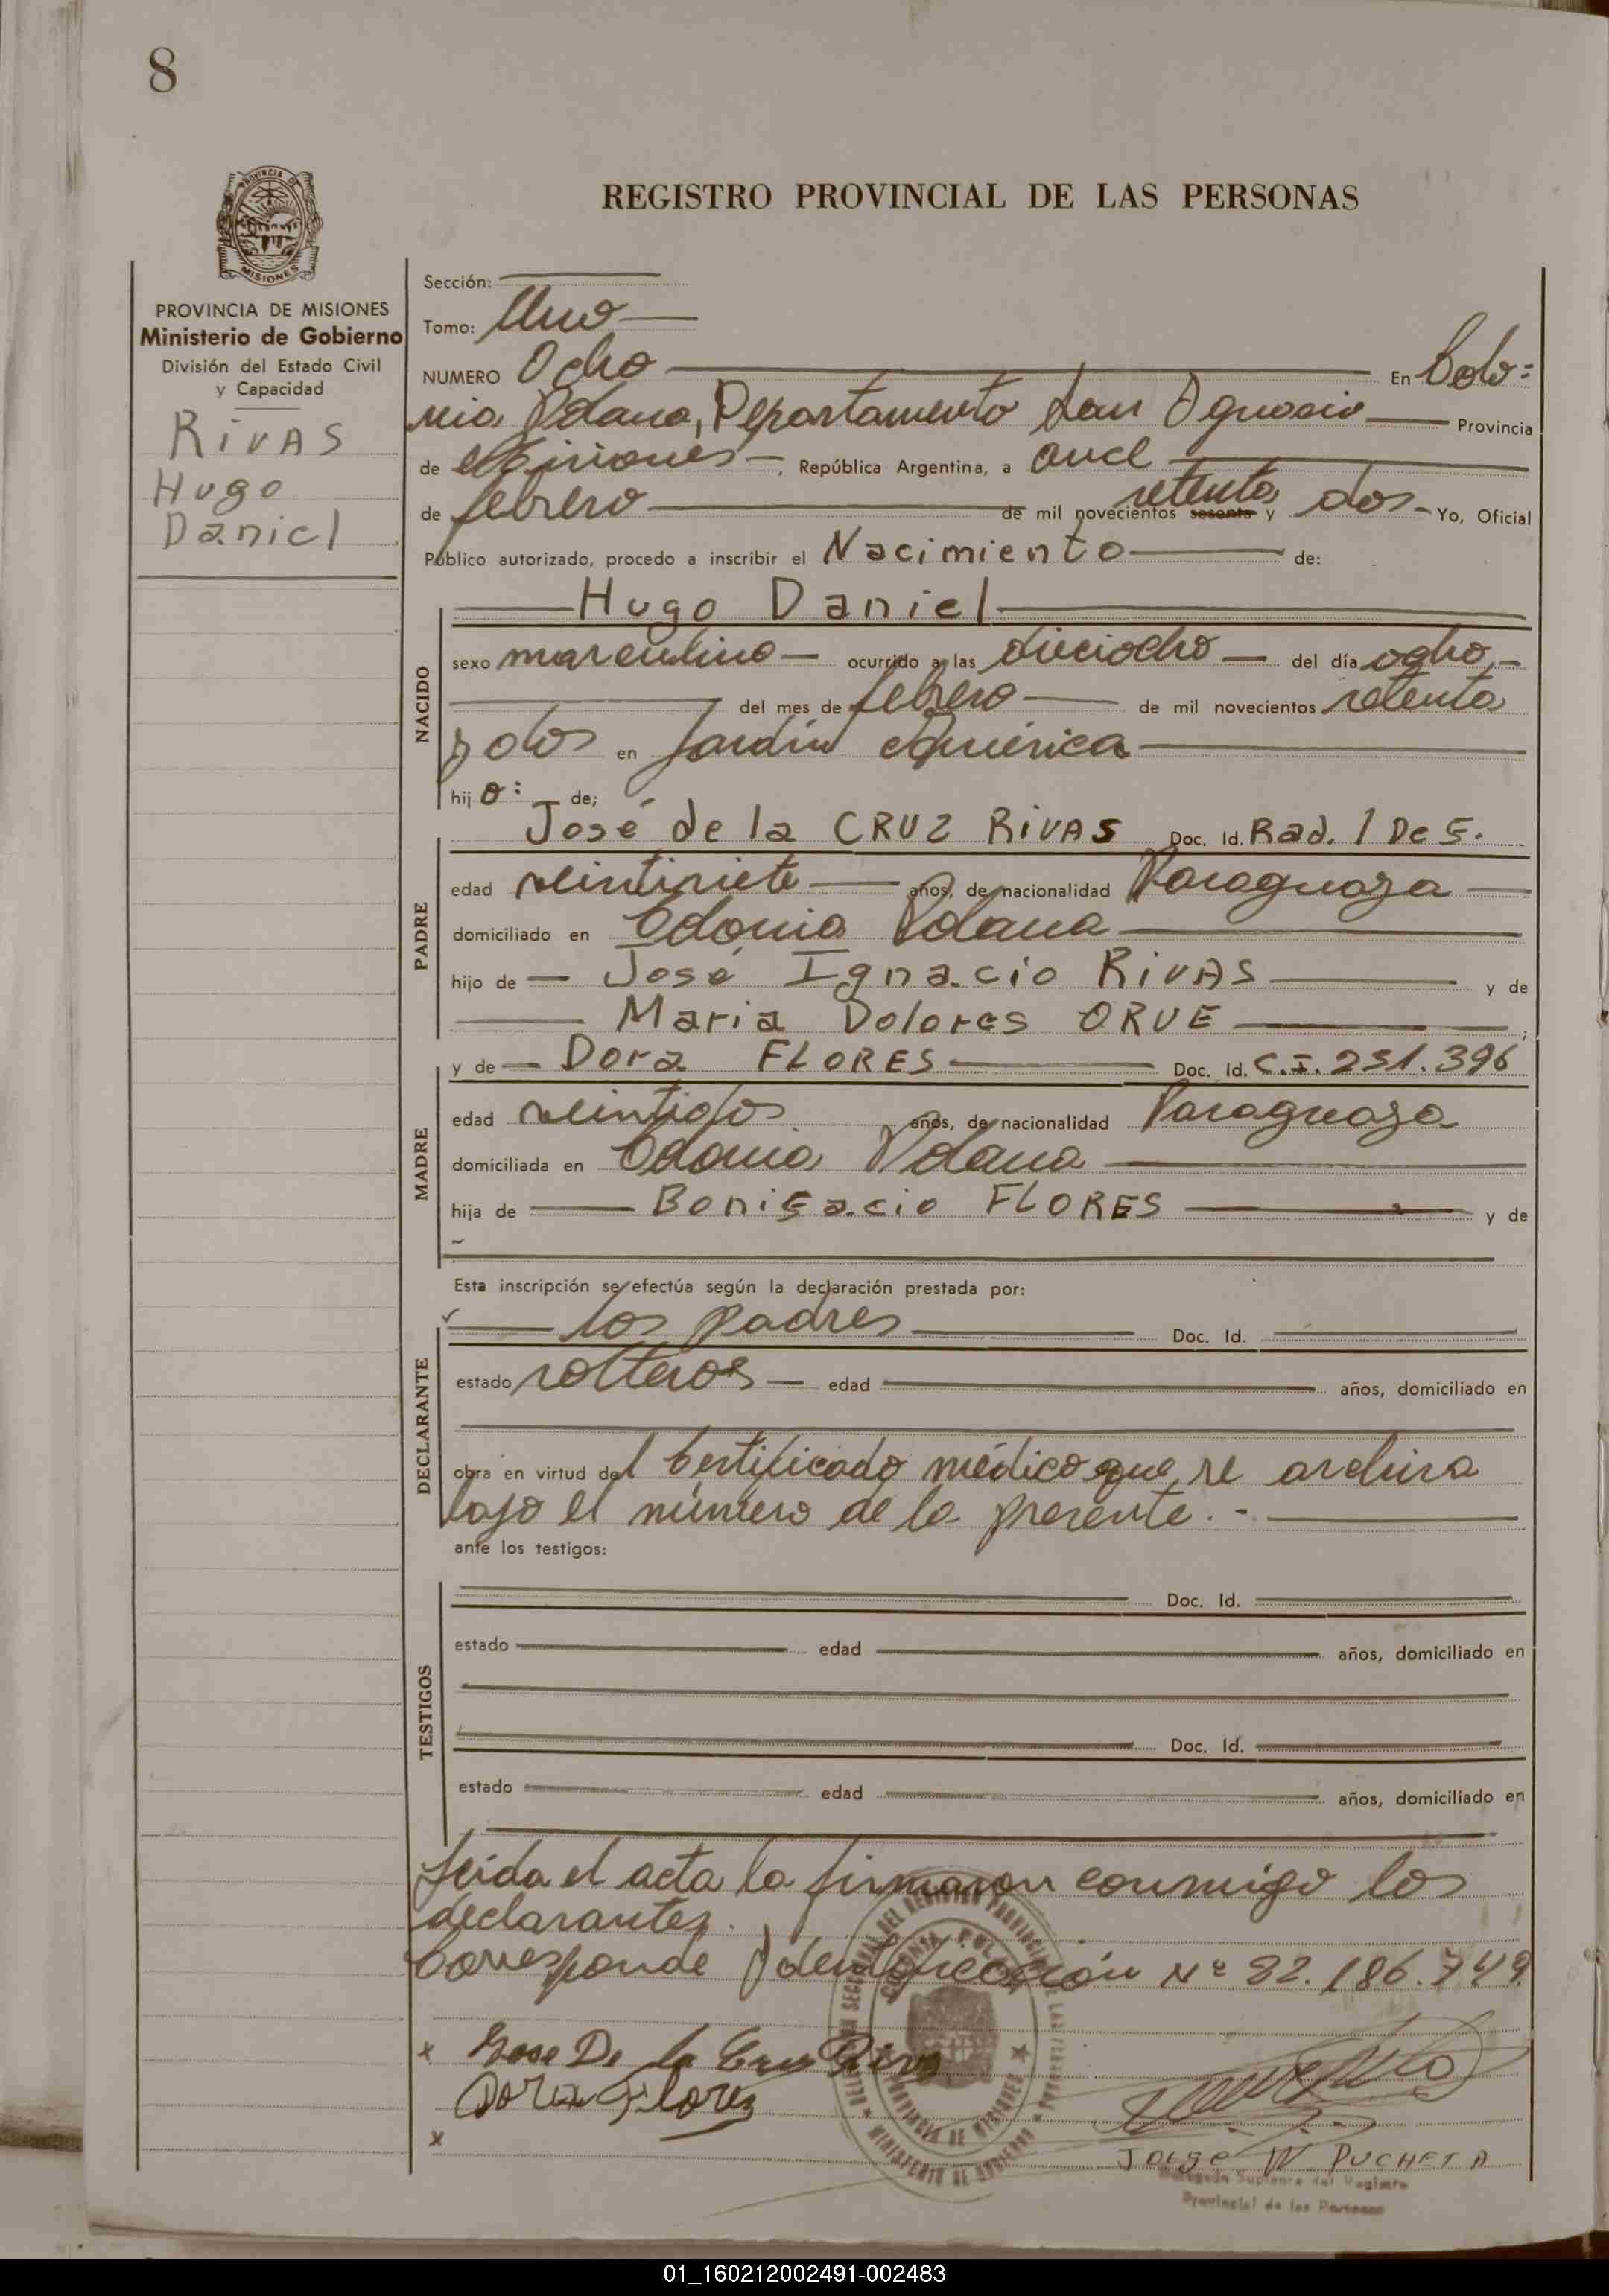 8
PROVINCIA DE
MISIONES
REGISTRO PROVINCIAL DE LAS PERSONAS
PROVINCIA DE MISIONES
Ministerio de Gobierno
División del Estado Civil
y Capacidad
RIVAS
Hugo
Daniel
Sección:
Tomo: Uno
NUMERO Ocho En Colo=
nia Polana, Departamento San Ignacio Provincia
de Misiones, República Argentina, a once
de febrero de mil novecientos sesenta setenta y dos Yo, Oficial
Público autorizado, procedo a inscribir el Nacimiento de:
NACIDO
Hugo Daniel
sexo masculino ocurrido a las dieciocho del día ocho
del mes de febrero de mil novecientos setenta
y dos en Jardín América
hijo: de;
PADRE
José de la CRUZ RIVAS Doc. Id. Rad. 1 De E.
edad veintisiete años, de nacionalidad Paraguaya
domiciliado en Colonia Polana
hijo de José Ignacio RIVAS y de
Maria Dolores ORUE ;
MADRE
y de Dora FLORES Doc. Id. C.I. 231.396
edad veintidos años, de nacionalidad Paraguaya
domiciliada en Colonia Polana
hija de Bonifacio FLORES y de
Esta inscripción se efectúa según la declaración prestada por:
DECLARANTE
los padres Doc. Id.
estado solteros edad años, domiciliado en
obra en virtud del Certificado médico que se archiva
bajo el número de la presente.-
ante los testigos:
TESTIGOS
Doc. Id.
estado edad años, domiciliado en
Doc. Id.
estado edad años, domiciliado en
Leida el acta la firmaron conmigo los
declarantes.
Corresponde Identificación Nº 22.186.749
x Jose De la Cruz Rivas
Dora Flores
x
COLONIA POLANA
PROVINCIA DE MISIONES
MINISTERIO DE GOBIERNO
Jorge W PUCHETA
Delegado Suplente del Registro
Provincial de las Personas
01_160212002491-002483